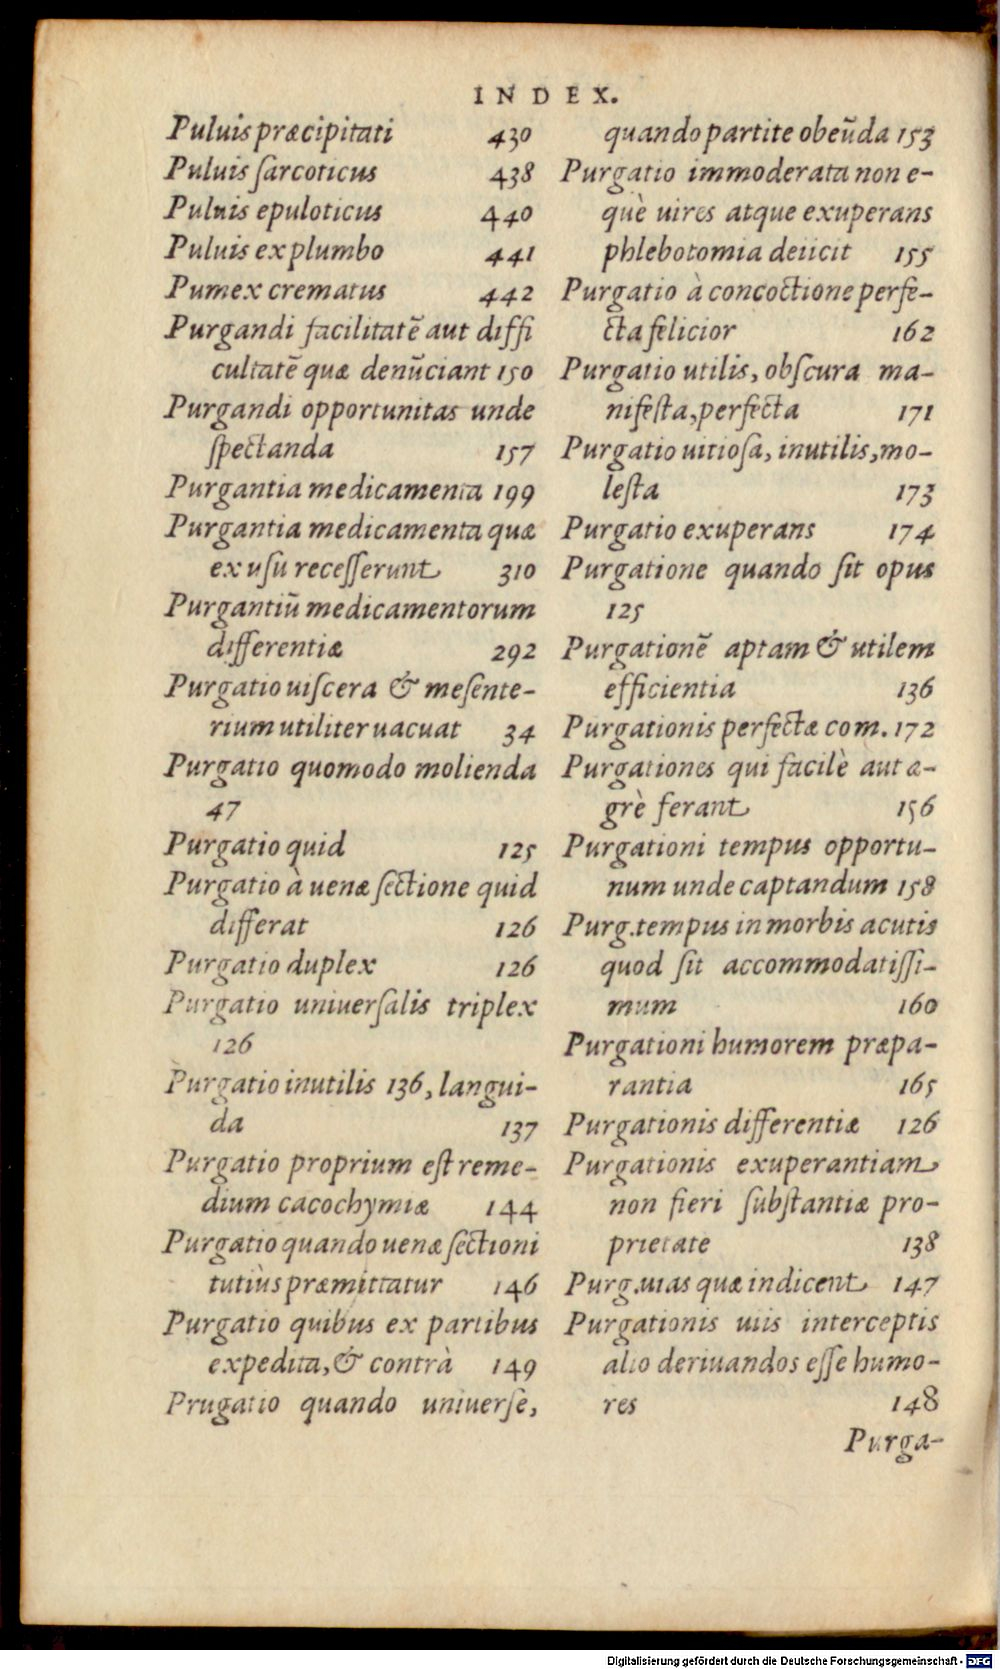 INDEX.
Puluis præcipitati 430
Puluis ſarcoticus 438
Puluis epuloticus 440
Puluis ex plumbo 441
Pumex crematus 442
Purgandi facilitatē aut diffi
cultatē quæ denūciant 150
Purgandi opportunitas unde
ſpectanda 157
Purgantia medicamenta 199
Purgantia medicamenta quæ
ex uſu receſſerunt 310
Purgantiū medicamentorum
differentiæ 292
Purgatio uiſcera & meſente-
rium utiliter uacuat 34
Purgatio quomodo molienda
47
Purgatio quid 125
Purgatio à uenæ ſectione quid
differat 126
Purgatio duplex 126
Purgatio uniuerſalis triplex
126
Purgatio inutilis 136, langui-
da 137
Purgatio proprium eſt reme-
dium cacochymiæ 144
Purgatio quando uenæ ſectioni
tutiùs præmittatur 146
Purgatio quibus ex partibus
expedita, & contrà 149
Prugatio quando uniuerſe,
quando partite obeūda 153
Purgatio immoderata non e-
què uires atque exuperans
phlebotomia deiicit 155
Purgatio à concoctione perfe-
cta felicior 162
Purgatio utilis, obſcura ma-
nifeſta, perfecta 171
Purgatio uitioſa, inutilis, mo-
leſta 173
Purgatio exuperans 174
Purgatione quando ſit opus
125
Purgationē aptam & utilem
efficientia 136
Purgationis perfectæ com. 172
Purgationes qui facilè aut æ-
grè ferant 156
Purgationi tempus opportu-
num unde captandum 158
Purg. tempus in morbis acutis
quod ſit accommodatiſſi-
mum 160
Purgationi humorem præpa-
rantia 165
Purgationis differentiæ 126
Purgationis exuperantiam
non fieri ſubſtantiæ pro-
prietate 138
Purg. uias quæ indicent 147
Purgationis uiis interceptis
alio deriuandos eſſe humo-
res 148
Purga-
Digitalisierung gefördert durch die Deutsche Forschungsgemeinschaft - DFG